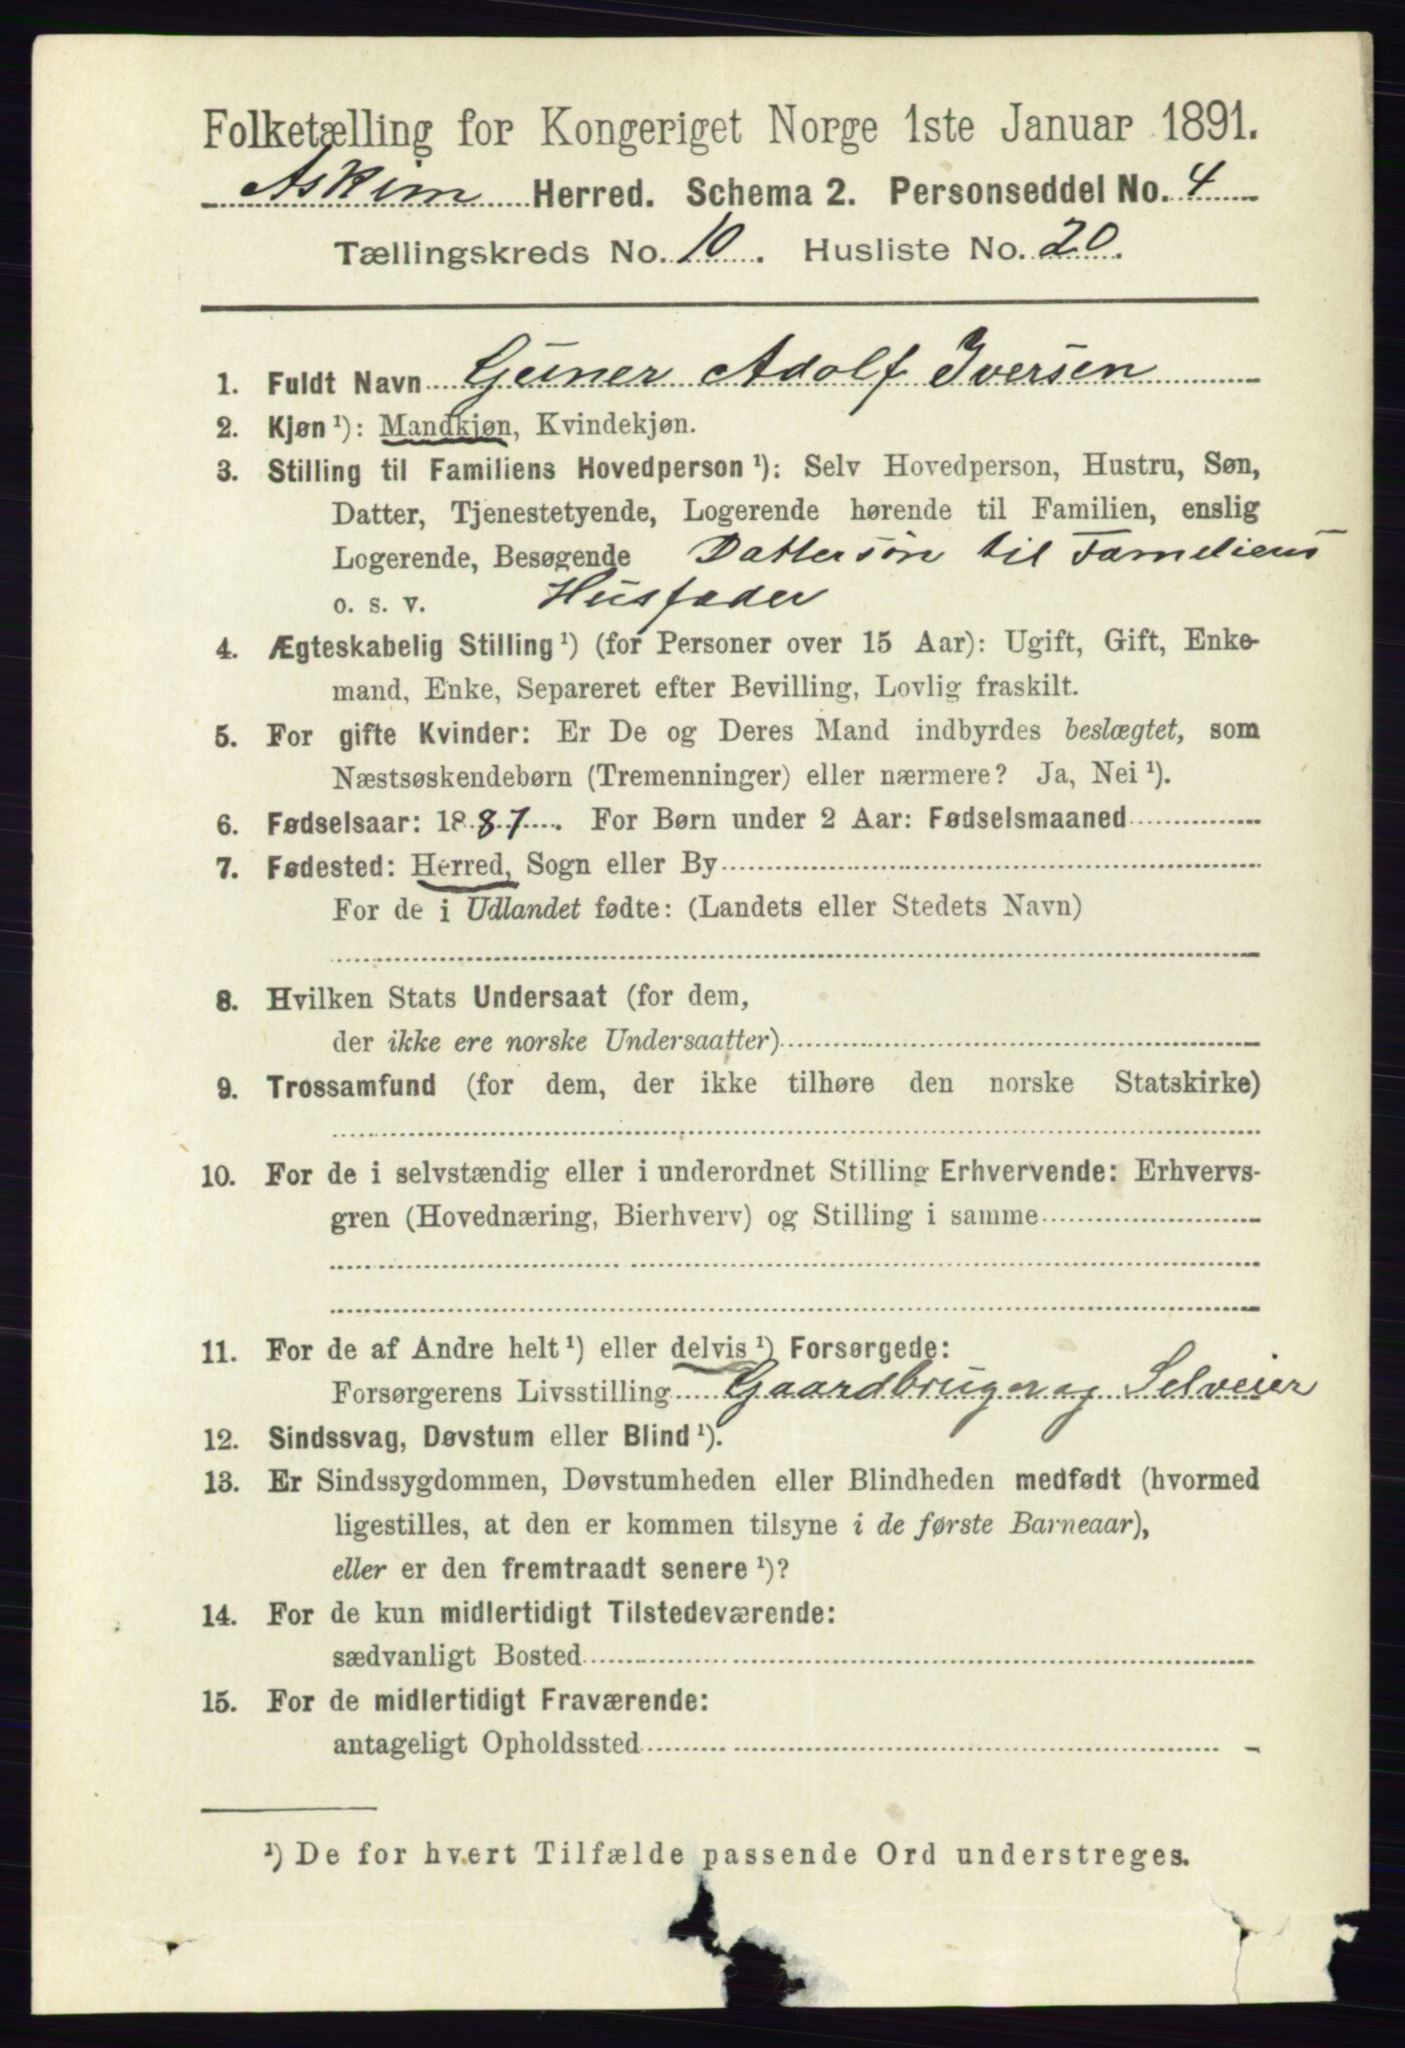 Folketælling for Kongeriget Norge 1ste Januar 1891.
Askim Herred. Schema 2. Personseddel No. 4
Tællingskreds No. 10. Husliste No. 20.
1. Fuldt Navn Guner Adolf Iversen
2. Kjøn ¹): Mandkjøn, Kvindekjøn.
3. Stilling til Familiens Hovedperson ¹): Selv Hovedperson, Hustru, Søn,
Datter, Tjenestetyende, Logerende hørende til Familien, enslig
Logerende, Besøgende Dattersøn til Fameliens
o. s. v. Husfader
4. Ægteskabelig Stilling ¹) (for Personer over 15 Aar): Ugift, Gift, Enke-
mand, Enke, Separeret efter Bevilling, Lovlig fraskilt.
5. For gifte Kvinder: Er De og Deres Mand indbyrdes beslægtet, som
Næstsøskendebørn (Tremenninger) eller nærmere? Ja, Nei ¹).
6. Fødselsaar: 1887. For Børn under 2 Aar: Fødselsmaaned
7. Fødested: Herred, Sogn eller By
For de i Udlandet fødte: (Landets eller Stedets Navn)
8. Hvilken Stats Undersaat (for dem,
der ikke ere norske Undersaatter)
9. Trossamfund (for dem, der ikke tilhøre den norske Statskirke)
10. For de i selvstændig eller i underordnet Stilling Erhvervende: Erhvervs-
gren (Hovednæring, Bierhverv) og Stilling i samme
11. For de af Andre helt ¹) eller delvis ¹) Forsørgede:
Forsørgerens Livsstilling Gaardbruger og Selveier
12. Sindssvag, Døvstum eller Blind ¹).
13. Er Sindssygdommen, Døvstumheden eller Blindheden medfødt (hvormed
ligestilles, at den er kommen tilsyne i de første Barneaar),
eller er den fremtraadt senere ¹)?
14. For de kun midlertidigt Tilstedeværende:
sædvanligt Bosted
15. For de midlertidigt Fraværende:
antageligt Opholdssted
¹) De for hvert Tilfælde passende Ord understreges.